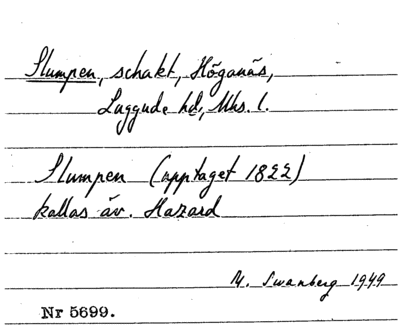 Slumpen, schakt, Höganäs,
Luggude hd, Mhs. l.
Slumpen (upptaget 1822)
kallas äv. Hazard
M. Swanberg 1949
Nr 5699.